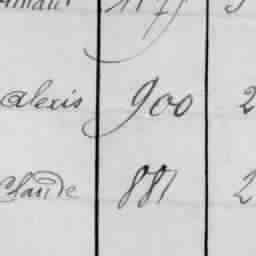 Alexis 900 2
Claude 881 2